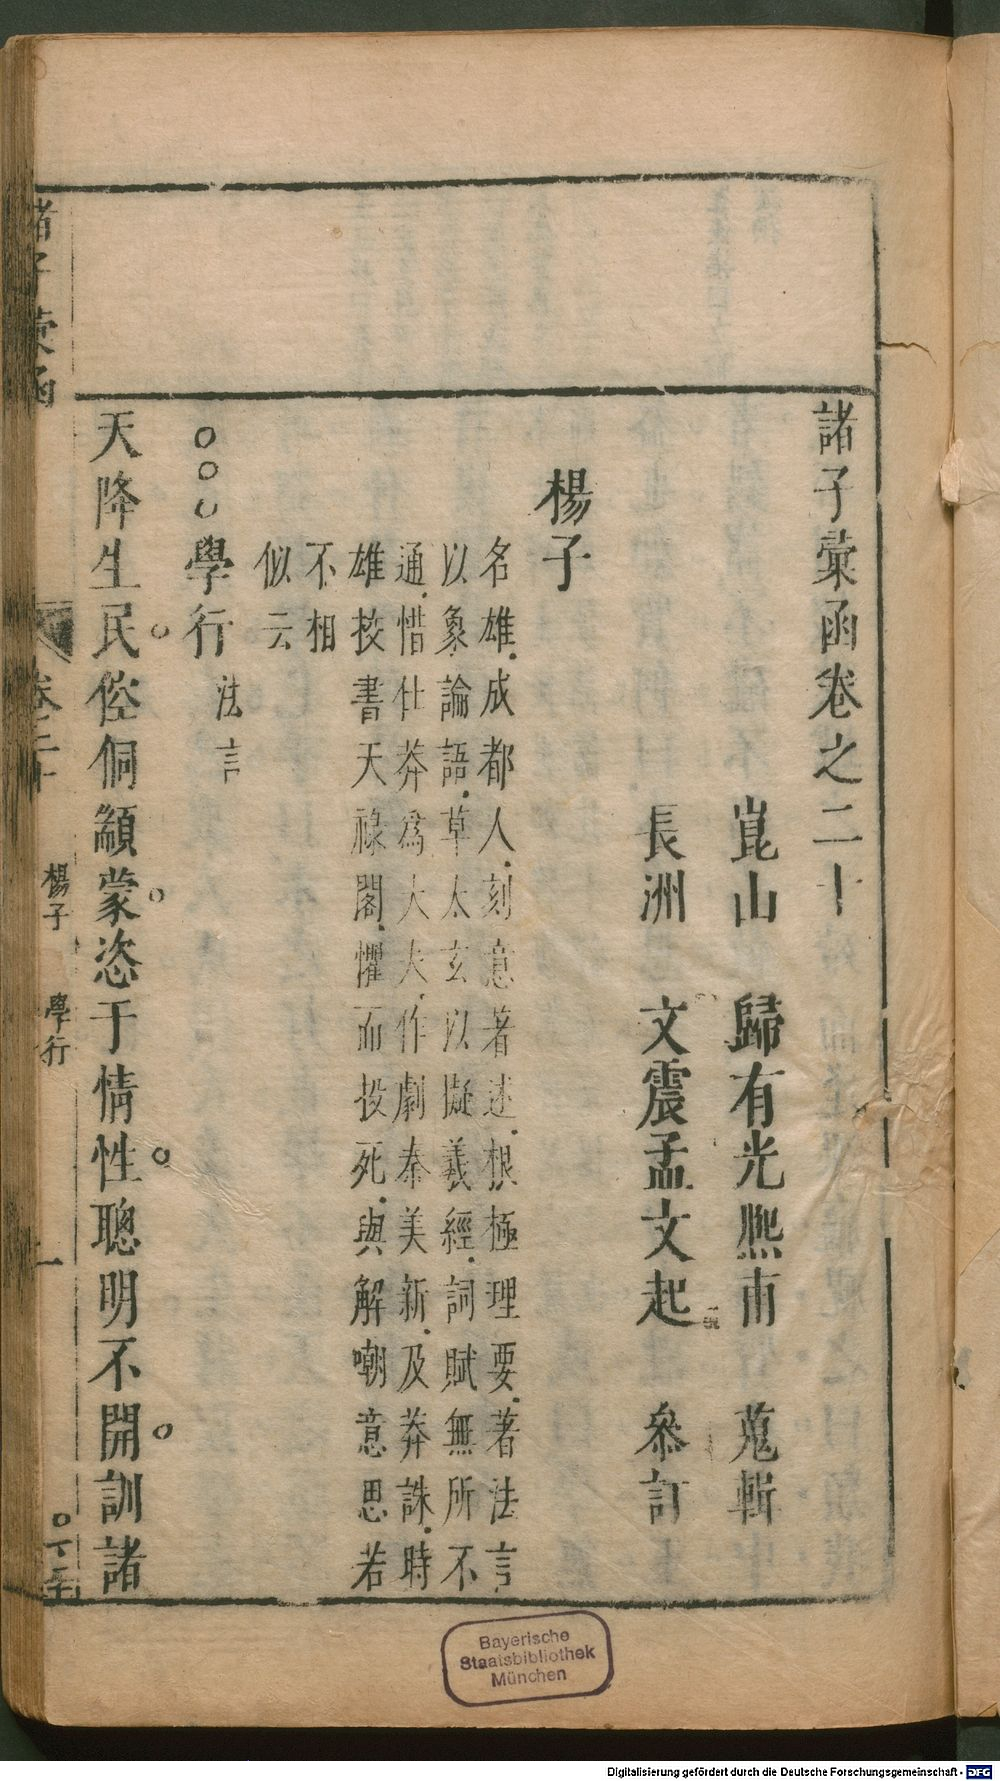 諸子彙函卷之二十
崑山 歸有光熙甫 蒐輯
長洲 文震孟文起 叅訂
楊子
名雄成都人刻意著述根極理要著法言
以象論語草太玄以擬羲經詞賦無所不
通惜仕莽爲大夫作劇秦美新及莽誅時
雄挍書天祿閣懼而投死與解嘲意思若
不相
似云
○○○學行 法言
天降生民倥侗顓蒙恣于情性聰明不開訓諸
諸子彙函
卷二十
楊子 學行
一
Bayerische
Staatsbibliothek
München
Digitalisierung gefördert durch die Deutsche Forschungsgemeinschaft - DFG